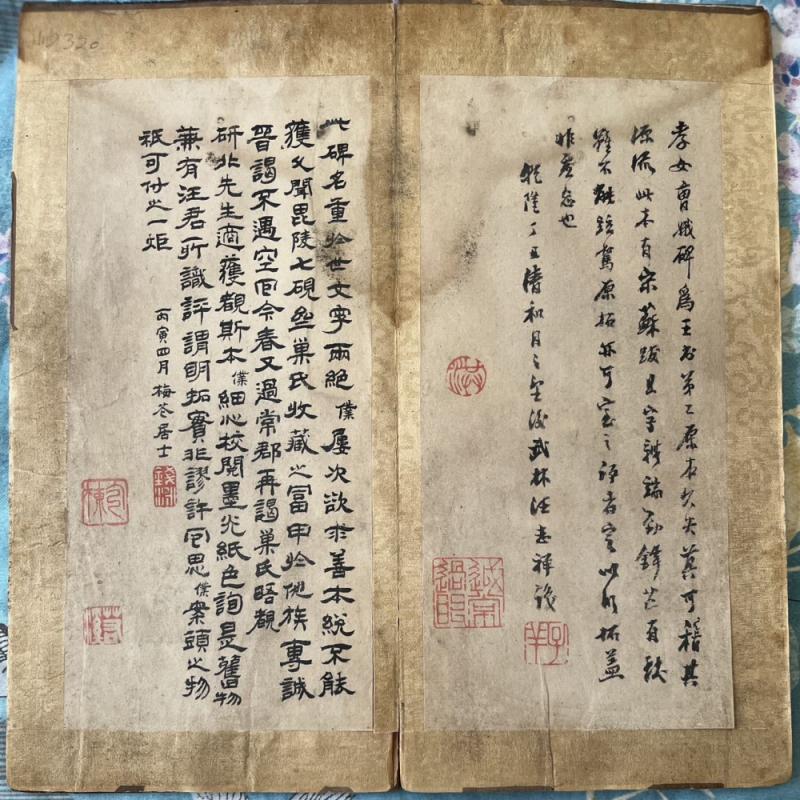 孝女曹娥碑爲王書第一原本久失莫可稽其
源流此本有宋蘇跋且字跡端勁鋒芒有致
雖不能跂駕原拓亦可寶之評者定以明拓蓋
非虛忽也
乾隆丁丑清和月之望後武林汪志祥護
此碑名重於世文字兩絶僕屢次欲求善本統不能
獲久聞毘陵七硯巢氏收藏之富甲於他族專誠
晉謁不遇空回今春又過常郡再謁巢氏晤觀
研北先生適獲觀斯本僕細心校閱墨光紙色詢是舊物
兼有汪君所識評謂明拓實非謬許回思僕案頭之物
祇可付之一炬
丙寅四月梅花居士
山320